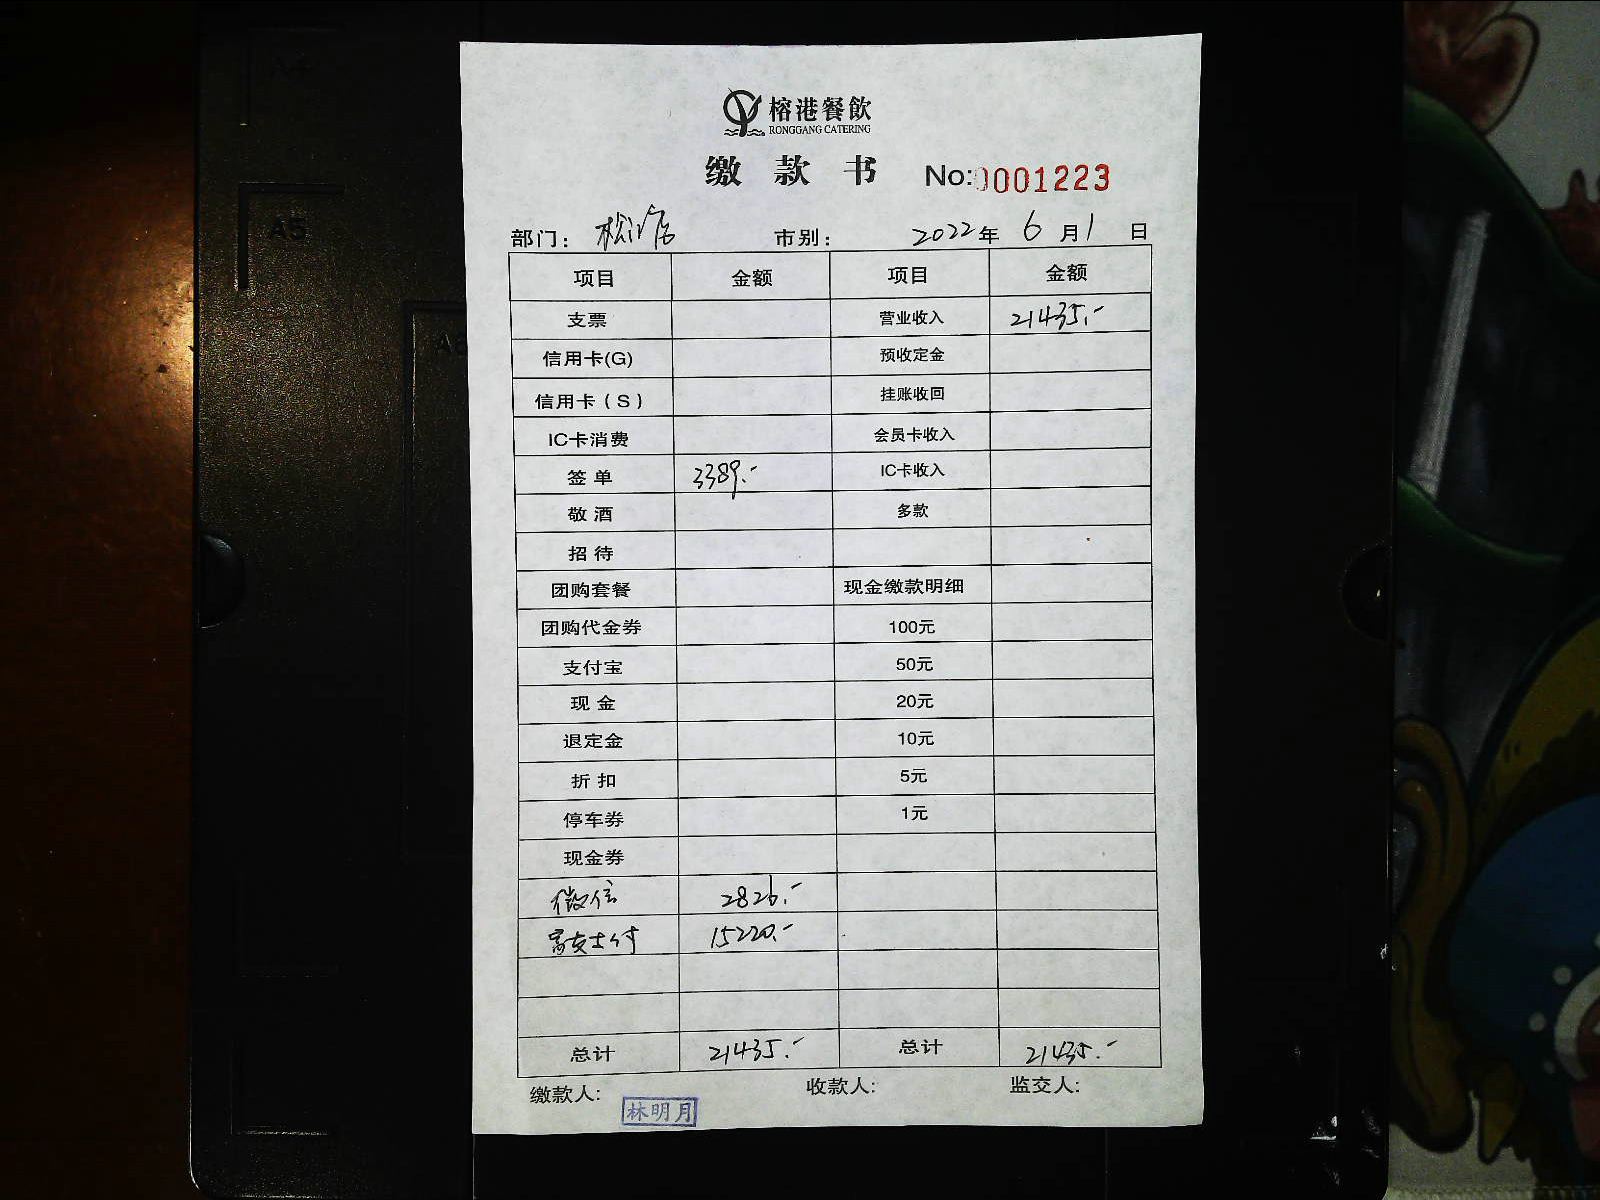 榕港餐飲
RONGGANG CATERING
缴 款 书 No:0001223
部门： 松江店 市别： 2022年 6月1日
项目 金额 项目 金额
支票 营业收入 21435.-
信用卡(G) 预收定金
信用卡（S） 挂账收回
IC卡消费 会员卡收入
签单 3389.- IC卡收入
敬酒 多款
招待
团购套餐 现金缴款明细
团购代金券 100元
支付宝 50元
现金 20元
退定金 10元
折扣 5元
停车券 1元
现金券
微信 2826.-
15220.-
总计 21435.- 总计 21435.-
缴款人: 林明月 收款人: 监交人:
A4
A5